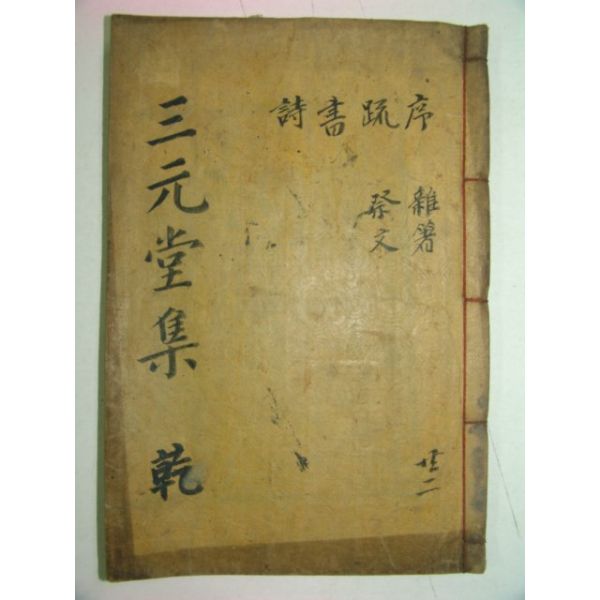 序疏書詩
雜箸
祭文
共二
三元堂集 乾